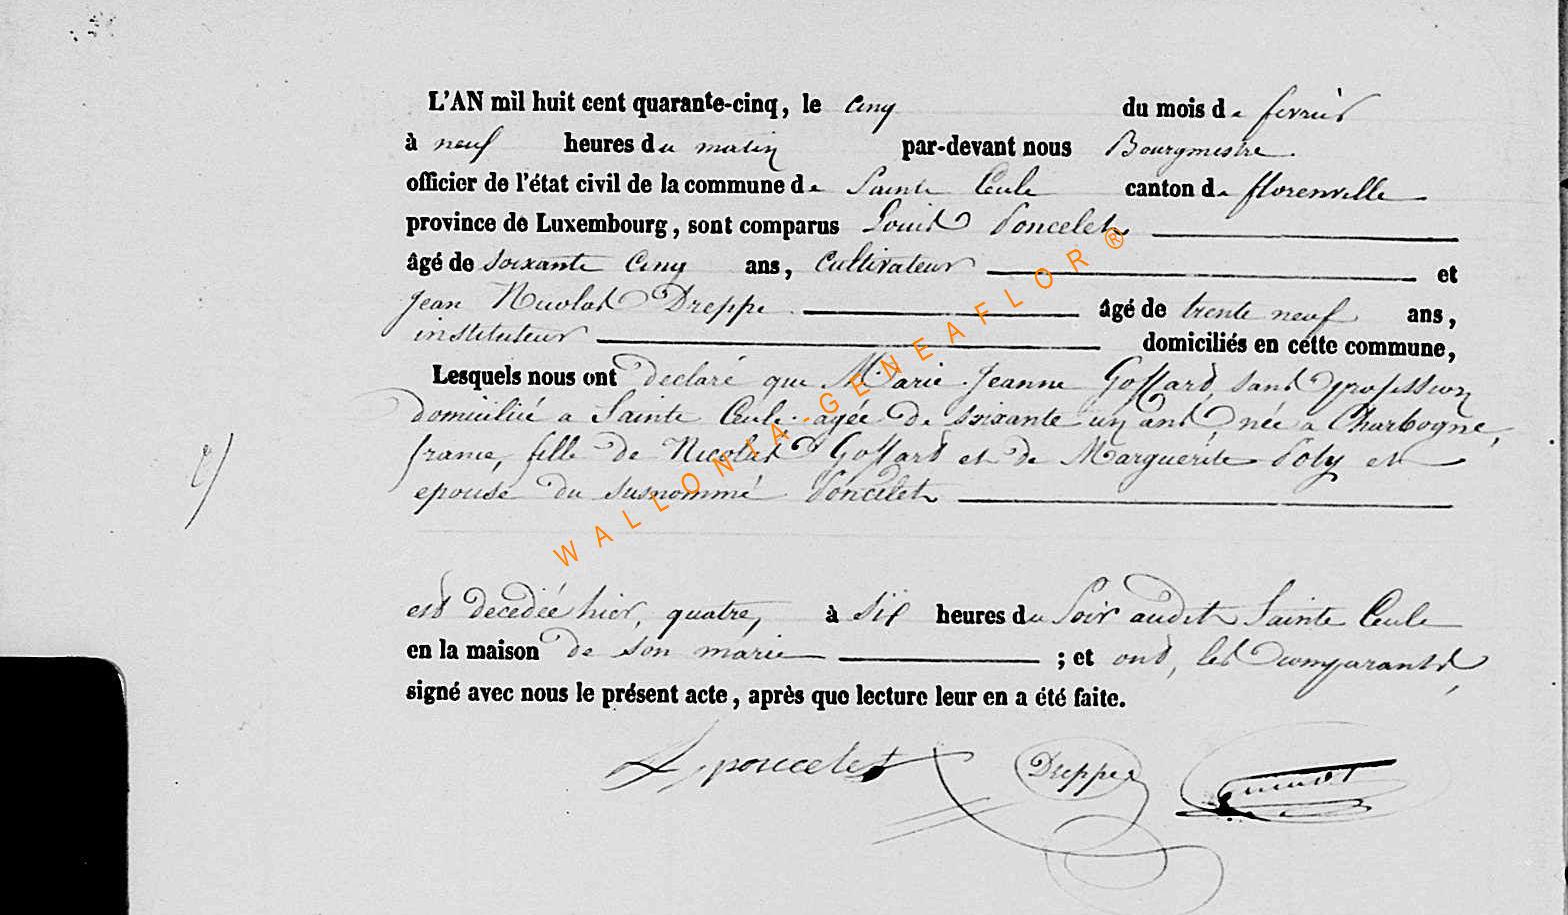 L'AN mil huit cent quarante-cinq, le cinq du mois de fevrier
à neuf heures du matin par-devant nous Bourgmestre
officier de l'état civil de la commune de Sainte Cecile canton de florenville
province de Luxembourg, sont comparus Louis Poncelet
âgé de soixante cinq ans, cultivateur et
Jean Nicolas Dreppe âgé de trente neuf ans,
instituteur domiciliés en cette commune,
Lesquels nous ont declaré que Marie Jeanne Goffard, sans profession
domiciliée a Sainte Cecile agée de soixante un ans née a Charbogne,
france, fille de Nicolas Goffard et de Marguerite Poly et
epouse du susnommé Poncelet
2)
est decedée hier, quatre, à six heures du soir audit Sainte Cecile
en la maison de son marie ; et ont, les comparants,
signé avec nous le présent acte, après que lecture leur en a été faite.
L poncelet Dreppe
WALLONIA-GENEAFLOR®